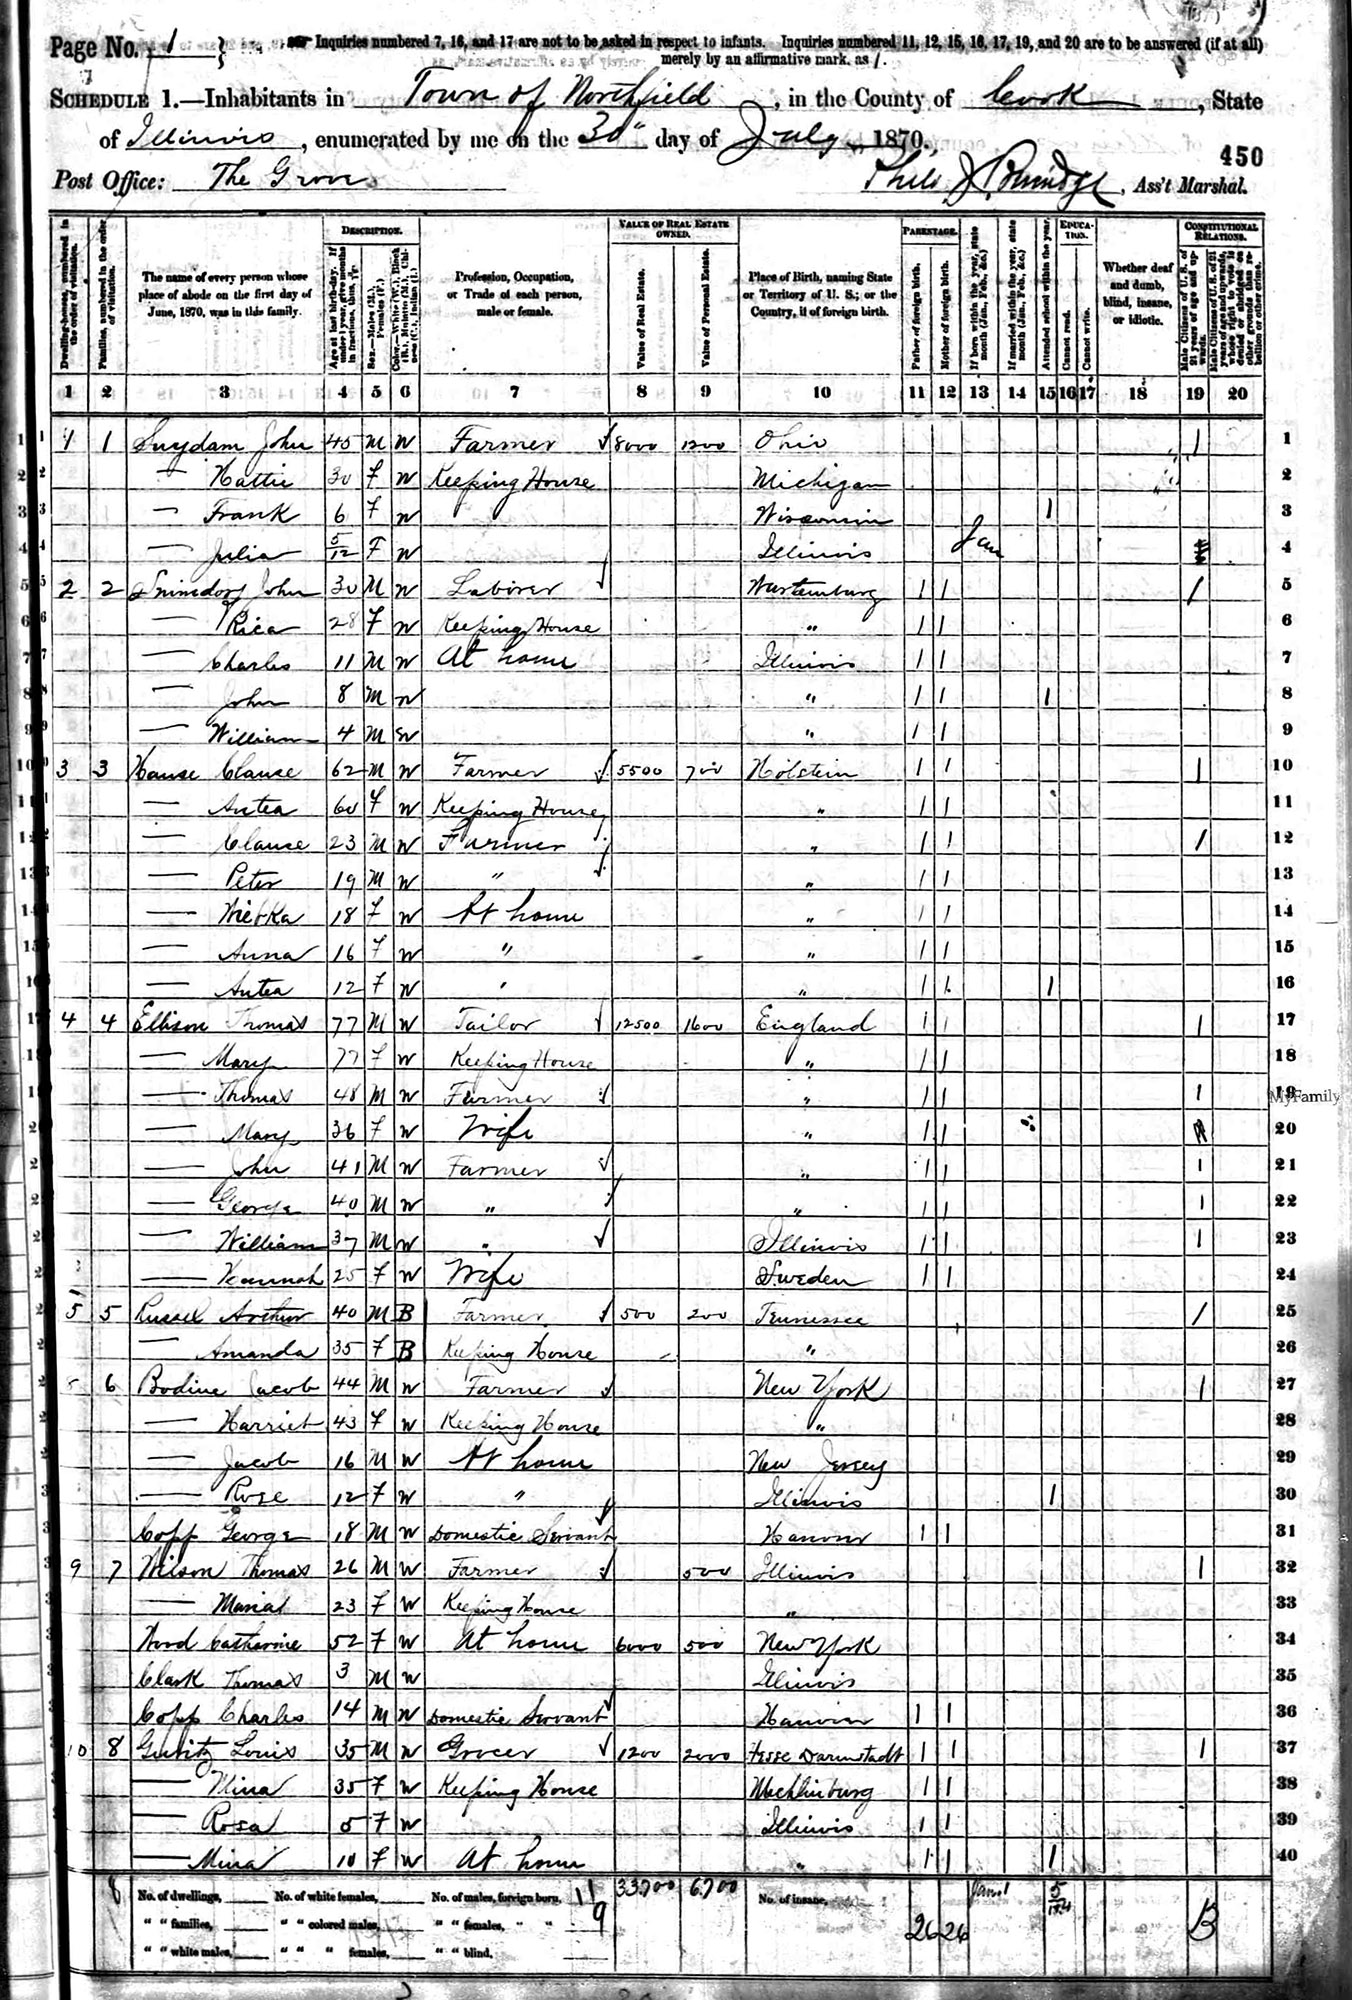 Page No. 1
Inquiries numbered 7, 16, and 17 are not to be asked in respect to infants. Inquiries numbered 11, 12, 15, 16, 17, 19, and 20 are to be answered (if at all)
merely by an affirmative mark, as /.
SCHEDULE 1.—Inhabitants in Town of Northfield, in the County of Cook, State
of Illinois, enumerated by me on the 30" day of July, 1870.
450
Post Office: The Grove
Ass't Marshal.
Dwelling-houses, numbered in the order of visitation.
Families, numbered in the order of visitation.
The name of every person whose place of abode on the first day of June, 1870, was in this family.
DESCRIPTION.
Age at last birth-day. If under 1 year, give months in fractions, thus, 3/12.
Sex.—Males (M.), Females (F.)
Color.—White (W.), Black (B.), Mulatto (M.), Chinese (C.), Indian (I.)
Profession, Occupation, or Trade of each person, male or female.
VALUE OF REAL ESTATE OWNED.
Value of Real Estate.
Value of Personal Estate.
Place of Birth, naming State or Territory of U. S.; or the Country, if of foreign birth.
PARENTAGE.
Father of foreign birth.
Mother of foreign birth.
If born within the year, state month (Jan., Feb., &c.)
If married within the year, state month (Jan., Feb., &c.)
Attended school within the year.
EDUCATION.
Cannot read.
Cannot write.
Whether deaf and dumb, blind, insane, or idiotic.
CONSTITUTIONAL RELATIONS.
Male Citizens of U. S. of 21 years of age and upwards.
Male Citizens of U. S. of 21 years of age and upwards, whose right to vote is denied or abridged on other grounds than rebellion or other crime.
1 2 3 4 5 6 7 8 9 10 11 12 13 14 15 16 17 18 19 20
1 1 1 Suydam John 45 M W Farmer 8000 1200 Ohio 1 1
2 — Hattie 30 F W Keeping House Michigan 2
3 — Frank 6 F W Wisconsin 1 3
4 — Julia 5/12 F W Illinois Jan 4
5 2 2 John 30 M W Laborer Wurtemburg 1 1 1 5
6 — Rica 28 F W Keeping House " 1 1 6
7 — Charles 11 M W At home Illinois 1 1 7
8 — John 8 M W " 1 1 1 8
9 — William 4 M W " 1 1 9
10 3 3 Hause Clause 62 M W Farmer 5500 700 Holstein 1 1 1 10
— Antea 60 F W Keeping House " 1 1 11
— Clause 23 M W Farmer " 1 1 1 12
— Peter 19 M W " " 1 1 13
— Wiebka 18 F W At home " 1 1 14
— Anna 16 F W " " 1 1 15
— Antea 12 F W " " 1 1 1 16
4 4 Ellison Thomas 77 M W Tailor 12500 1600 England 1 1 1 17
— Mary 77 F W Keeping House " 1 1 18
— Thomas 48 M W Farmer " 1 1 1 19
MyFamily
— Mary 36 F W Wife " 1 1 20
— John 41 M W Farmer " 1 1 1 21
— George 40 M W " " 1 1 1 22
— William 37 M W " Illinois 1 1 1 23
— Hannah 25 F W Wife Sweden 1 1 24
5 5 Russel Arthur 40 M B Farmer 500 200 Tennessee 1 25
— Amanda 35 F B Keeping House " 26
6 Bodine Jacob 44 M W Farmer New York 1 27
— Harriet 43 F W Keeping House " 28
— Jacob 16 M W At home New Jersey 29
— Rose 12 F W " Illinois 1 30
Copp George 18 M W Domestic Servant Hanover 1 1 31
9 7 Wilson Thomas 26 M W Farmer 500 Illinois 1 32
— Maria 23 F W Keeping House " 33
Wood Catherine 52 F W At home 6000 500 New York 34
Clark Thomas 3 M W Illinois 35
Copp Charles 14 M W Domestic Servant Hanover 1 1 36
10 8 Louis 35 M W Grocer 1200 2000 Hesse Darmstadt 1 1 1 37
— Mina 35 F W Keeping House Mecklinburg 1 1 38
— Rosa 5 F W Illinois 1 1 39
— Mina 10 F W At home " 1 1 1 40
8 No. of dwellings, No. of white females, No. of males, foreign born, 11 33.700 6.700 No. of insane, 26 26
" " families, " " colored males, " " females, " " 9
" " white males, " " " females, " " blind,